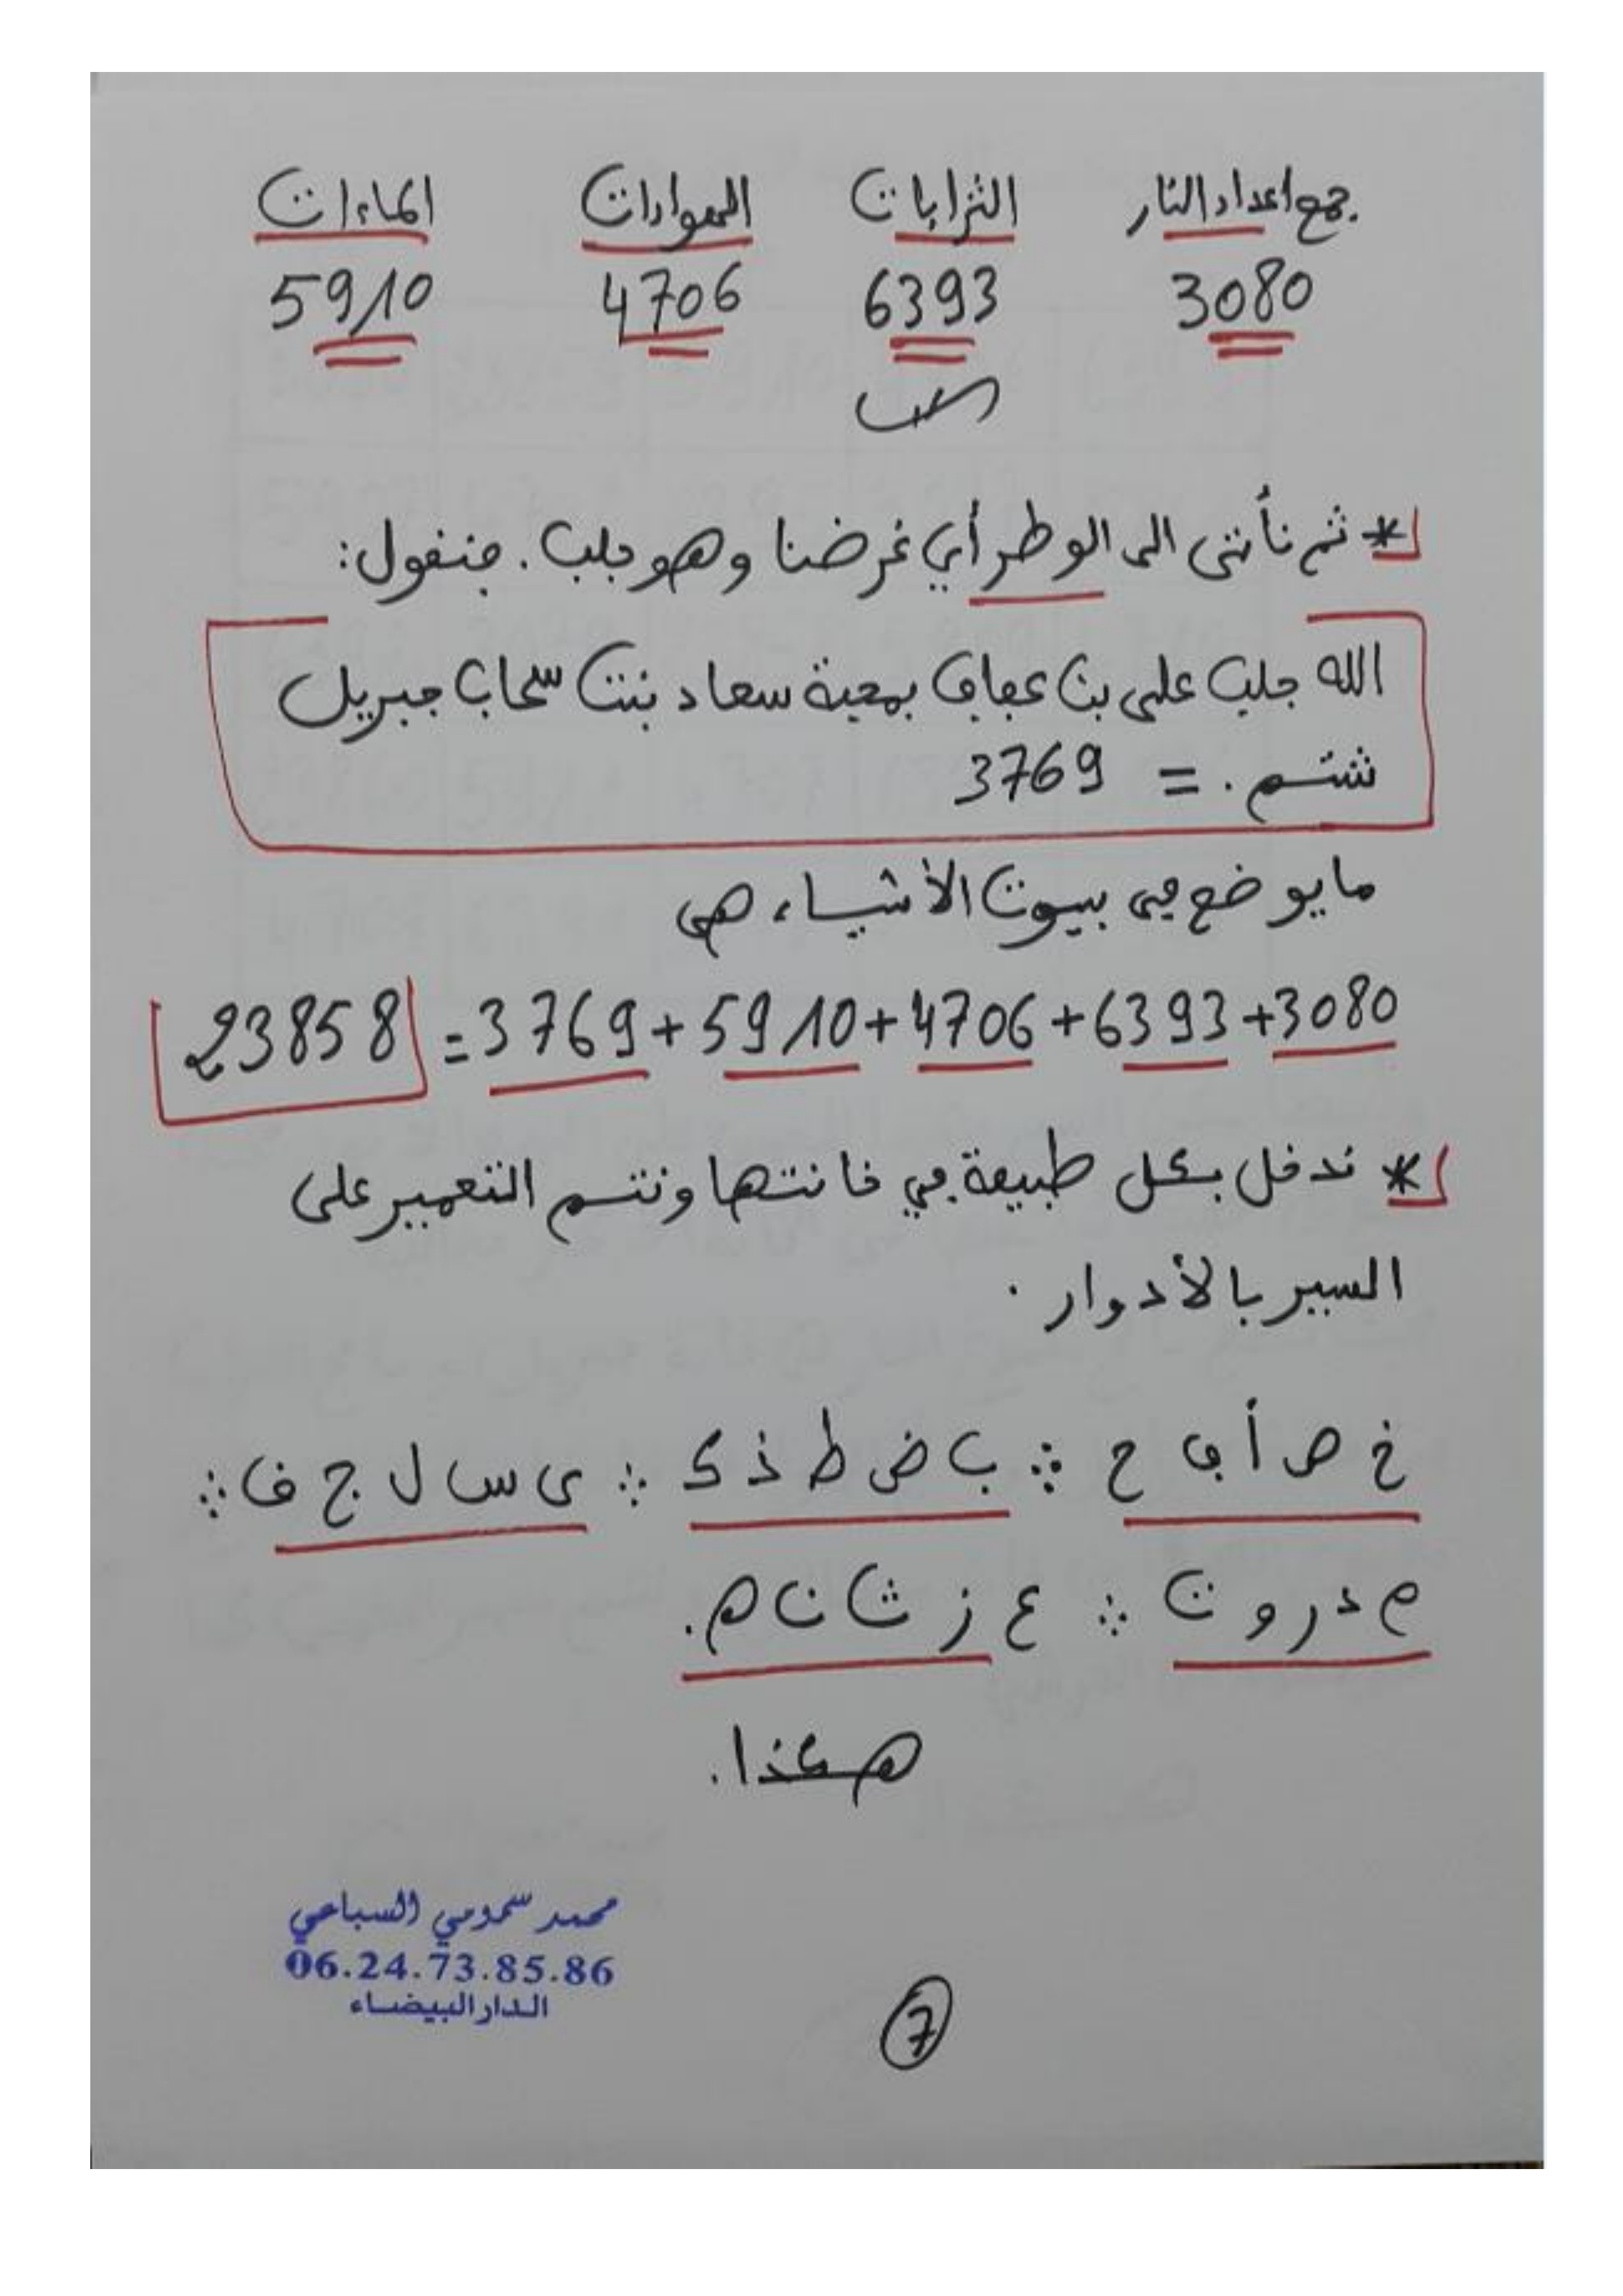 جمع اعداد النار الترابات الهوادات الماءات
3080 6393 4706 5910
* ثم نأتي الى الوطر أي غرضنا وهو جلب. فنقول:
الله جلب على بن عفاف بمعية سعاد بنت سحاب جبريل
شتم. = 3769
ما يوضع في بيوت الأشياء هي
3080+6393+4706+5910+3769= 23858
* ندخل بكل طبيعة في خانتها ونتم التعمير على
السير بالأدوار.
خ ص أ ف ح ∴ ب ض ط ذ ك ∴ ى س ل ج ق ∴
م د ر و ت ∴ ع ز ث ن ه.
هكذا.
محمد سمومي السباعي
06.24.73.85.86
الدار البيضاء
7